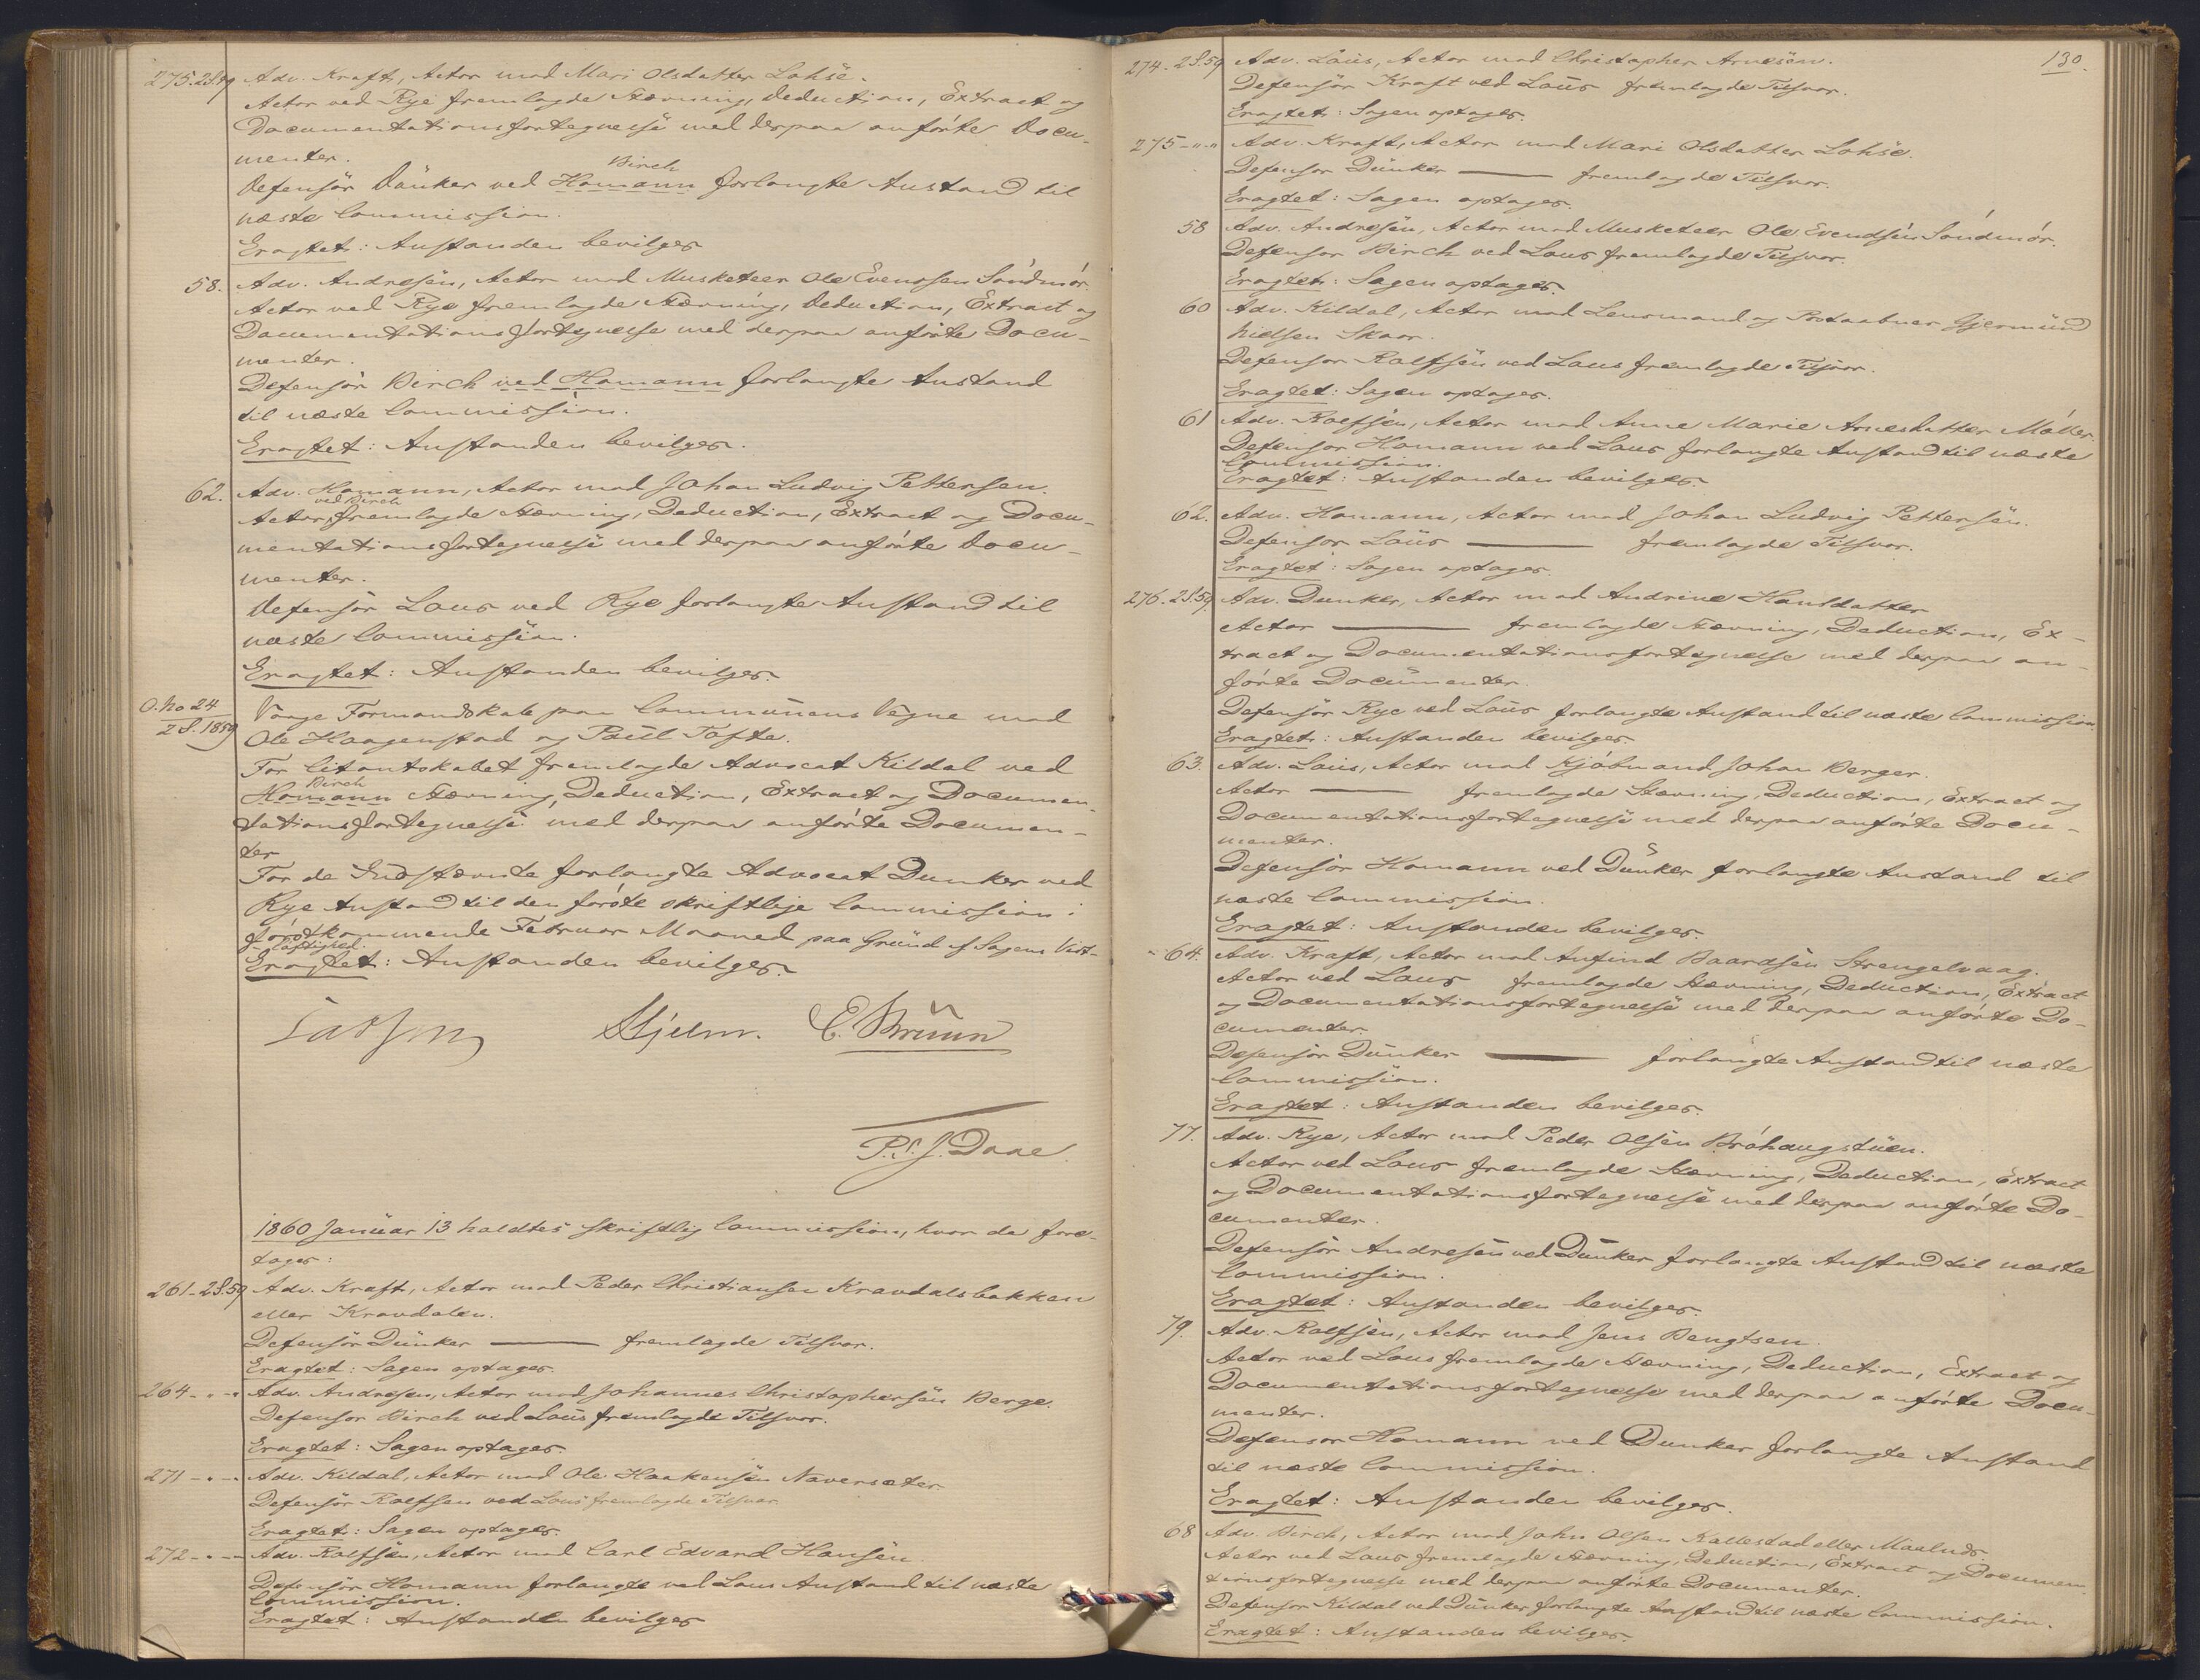 275. 2S.59 Adv. Kraft, Actor mod Mari Olsdatter Lohse.
Actor ved Rye fremlagde Stævning, Deduction, Extract og
Documentationsfortegnelse med derpaa anførte Docu-
menter.
Birch
Defensor Dunker ved Homann forlangte Anstand til
næste Commission.
Eragtet: Anstanden bevilges
58. Adv. Andresen, Actor mod Musketeer Ole Evensen Søndmør.
Actor ved Rye fremlagde Stævning, Deduction, Extract og
Documentationsfortegnelse med derpaa anførte Docu-
menter.
Defensor Birch ved Homann forlangte Anstand
til næste Commission.
Eragtet: Anstanden bevilges.
62. Adv. Homann, Actor mod Johan Ludvig Pettersen.
ved Birch
Actor fremlagde Stævning, Deduction, Extract og Docu-
mentationsfortegnelse med derpaa anførte Docu-
menter.
Defensor Lous ved Rye forlangte Anstand til
næste Commission.
Eragtet: Anstanden bevilges.
O. No 24
2 S. 1859
Vaage Formandskab paa Communens Vegne mod
Ole Haagenstad og Paul Tofte.
For Citantskabet fremlagde Advocat Kildal ved
Birch
Homann Stævning, Deduction, Extract og Documen-
tationsfortegnelse med derpaa anførte Documen-
ter
For de Indstævnte forlangte Advocat Dunker ved
Rye Anstand til den første skriftlige Commission i
førstkommende Februar Maaned paa Grund af Sagens Vidt-
løftighed.
Eragtet: Anstanden bevilges.
Lasson Hjelm. C. Bruun
P. S. J. Daae
1860 Januar 13 holdtes skriftlig Commission, hvor da fore-
tages:
261-2S.59 Adv. Kraft, Actor mod Peder Christiansen Kravdalsbakken
eller Kravdalen.
Defensor Dunker ——— fremlagde Tilsvar.
Eragtet: Sagen optages.
264 - " - " Adv. Andresen, Actor mod Johannes Christophersen Berge.
Defensor Birch ved Lous fremlagde Tilsvar.
Eragtet: Sagen optages.
271 - " - " Adv. Kildal, Actor mod Ole Haakensen Naversæter
Defensor Rolfsen ved Lous fremlagde Tilsvar
Eragtet: Sagen optages.
272 - " - " Adv. Rolfsen, Actor mod Carl Edvard Hansen.
Defensor Homann forlangte ved Lous Anstand til næste
Commission.
Eragtet: Anstanden bevilges
130.
274. 2S.59 Adv. Lous, Actor mod Christopher Arnesen.
Defensor Kraft ved Lous fremlagde Tilsvar.
Eragtet: Sagen optages.
275 - " - " Adv. Kraft, Actor mod Mari Olsdatter Lohse.
Defensor Dunker ——— fremlagde Tilsvar.
Eragtet: Sagen optages.
58 Adv. Andresen, Actor mod Musketeer Ole Evendsen Søndmør.
Defensor Birch ved Lous fremlagde Tilsvar.
Eragtet: Sagen optages.
60 Adv. Kildal, Actor mod Lensmand og Postaabner Gjermund
Nielsen Skaar.
Defensor Rolfsen ved Lous fremlagde Tilsvar.
Eragtet: Sagen optages.
61 Adv. Rolfsen, Actor mod Anne Marie Arnesdatter Møller.
Defensor Homann ved Lous forlangte Anstand til næste
Commission.
Eragtet: Anstanden bevilges.
62. Adv. Homann, Actor mod Johan Ludvig Pettersen.
Defensor Lous ——— fremlagde Tilsvar.
Eragtet: Sagen optages.
276. 2S.59. Adv. Dunker, Actor mod Andrine Hansdatter
Actor ——— fremlagde Stævning, Deduction, Ex-
tract og Documentationsfortegnelse med derpaa an-
førte Documenter.
Defensor Rye ved Lous forlangte Anstand til næste Commission.
Eragtet: Anstanden bevilges.
63. Adv. Lous, Actor mod Kjøbmand Johan Berger.
Actor ——— fremlagde Stævning, Deduction, Extract og
Documentationsfortegnelse med derpaa anførte Docu-
menter.
Defensor Homann ved Dunker forlangte Anstand til
næste Commission.
Eragtet: Anstanden bevilges.
64. Adv. Kraft, Actor mod Anfind Baardsen Strengelvaag.
Actor ved Lous fremlagde Stævning, Deduction, Extract
og Documentationsfortegnelse med derpaa anførte Do-
cumenter.
Defensor Dunker ——— forlangte Anstand til næste
Commission.
Eragtet: Anstanden bevilges.
77. Adv. Rye, Actor mod Peder Olsen Brøhaugstuen.
Actor ved Lous fremlagde Stævning, Deduction, Extract
og Documentationsfortegnelse med derpaa anførte Do-
cumenter.
Defensor Andresen ved Dunker forlangte Anstand til næste
Commission.
Eragtet: Anstanden bevilges.
79. Adv. Rolfsen, Actor mod Jens Bengtsen.
Actor ved Lous fremlagde Stævning, Deduction, Extract og
Documentationsfortegnelse med derpaa anførte Docu-
menter.
Defensor Homann ved Dunker forlangte Anstand
til næste Commission.
Eragtet: Anstanden bevilges.
68 Adv. Birch, Actor mod John Olsen Kallestad eller Maalnes
Actor ved Lous fremlagde Stævning, Deduction, Extract og Documen-
tionsfortegnelse med derpaa anførte Documenter.
Defensor Kildal ved Dunker forlangte Anstand til næste Commission.
Eragtet: Anstanden bevilges.